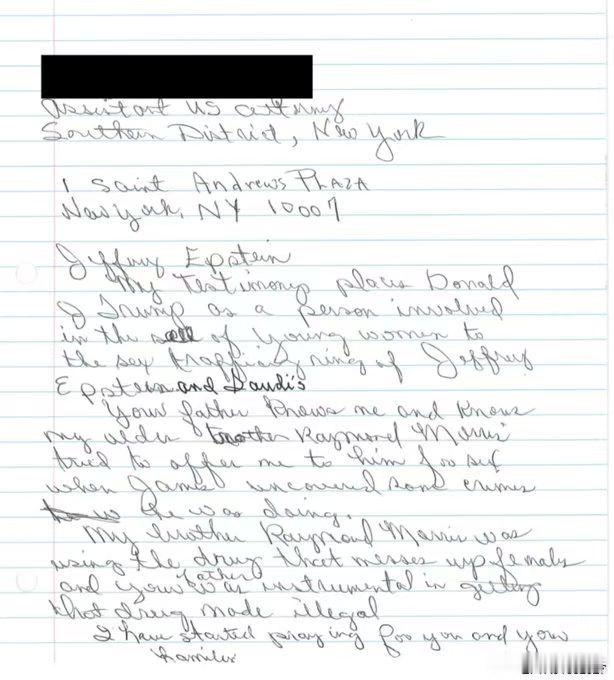 Assistant US Attorney
Southern District, New York
1 Saint Andrews PLAZA
New York, NY 10007
Jeffrey Epstein
My testimony places Donald
J Trump as a person involved
in the sell of young women to
the sex trafficing ring of Jeffrey
Epstein and Saudi's
Your father knows me and knows
my older brother Raymond Morris
tried to offer me to him for sex
when James uncovered some crimes
he was doing.
My brother Raymond Morris was
using the drug that messes up females
and your father was instrumental in getting
that drug made illegal
I have started praying for you and your
families